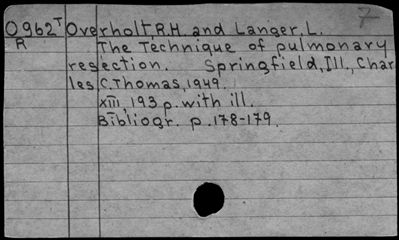 7
O962T Overholt, R.H. and Langer, L.
R The Technique of pulmonary
resection. Springfield, Ill., Char
les C. Thomas, 1949.
XIII, 193 p. with ill.
Bibliogr. p. 178-179.